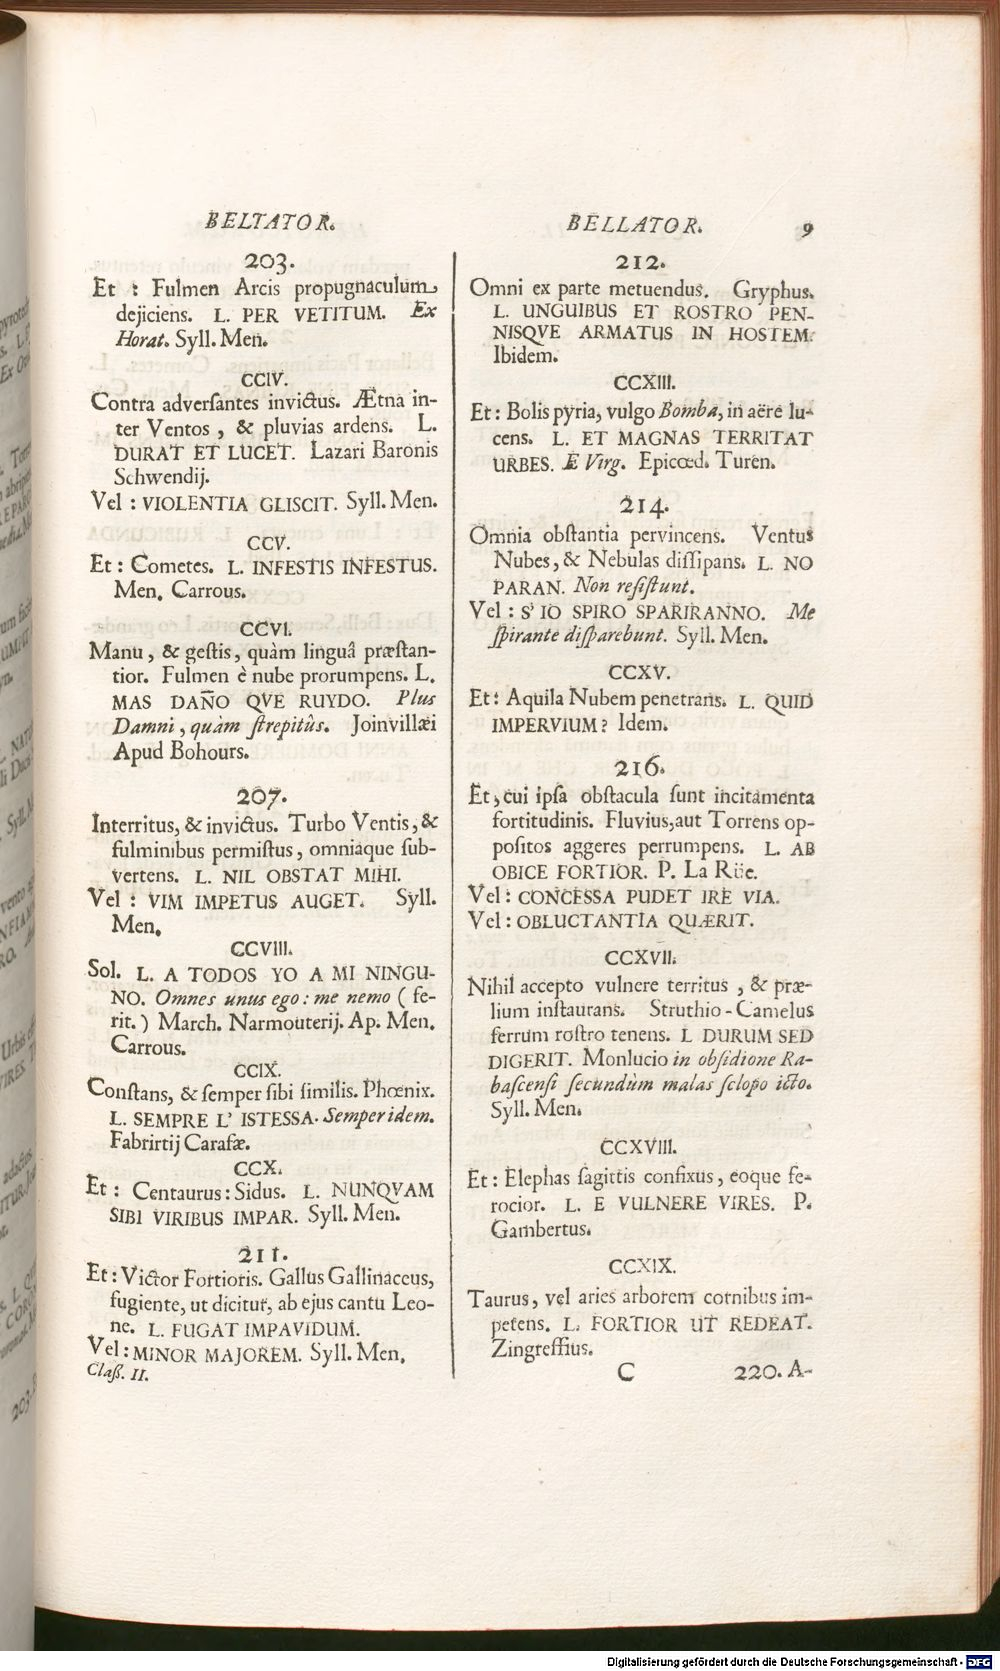 BELTATOR.
203.
Et : Fulmen Arcis propugnaculum
dejiciens. L. PER VETITUM. Ex
Horat. Syll. Men.
CCIV.
Contra adverſantes invictus. Ætna in-
ter Ventos , & pluvias ardens. L.
DURAT ET LUCET. Lazari Baronis
Schwendij.
Vel : VIOLENTIA GLISCIT. Syll. Men.
CCV.
Et : Cometes. L. INFESTIS INFESTUS.
Men. Carrous.
CCVI.
Manu , & geſtis , quàm linguâ præſtan-
tior. Fulmen è nube prorumpens. L.
MAS DAÑO QVE RUYDO. Plus
Damni , quàm ſtrepitûs. Joinvillæi
Apud Bohours.
207.
Interritus, & invictus. Turbo Ventis, &
fulminibus permiſtus, omniaque ſub-
vertens. L. NIL OBSTAT MIHI.
Vel : VIM IMPETUS AUGET. Syll.
Men.
CCVIII.
Sol. L. A TODOS YO A MI NINGU-
NO. Omnes unus ego : me nemo ( fe-
rit. ) March. Narmouterij. Ap. Men.
Carrous.
CCIX.
Conſtans, & ſemper ſibi ſimilis. Phœnix.
L. SEMPRE L' ISTESSA. Semper idem.
Fabrirtij Carafæ.
CCX.
Et : Centaurus : Sidus. L. NUNQVAM
SIBI VIRIBUS IMPAR. Syll. Men.
211.
Et : Victor Fortioris. Gallus Gallinaceus,
fugiente, ut dicitur, ab ejus cantu Leo-
ne. L. FUGAT IMPAVIDUM.
Vel : MINOR MAJOREM. Syll. Men.
Claſſ. II.
BELLATOR. 9
212.
Omni ex parte metuendus. Gryphus.
L. UNGUIBUS ET ROSTRO PEN-
NISQVE ARMATUS IN HOSTEM.
Ibidem.
CCXIII.
Et : Bolis pyria, vulgo Bomba, in aëre lu-
cens. L. ET MAGNAS TERRITAT
URBES. E Virg. Epicœd. Turen.
214.
Omnia obſtantia pervincens. Ventus
Nubes, & Nebulas diſſipans. L. NO
PARAN. Non reſiſtunt.
Vel : S' IO SPIRO SPARIRANNO. Me
ſpirante diſparebunt. Syll. Men.
CCXV.
Et : Aquila Nubem penetrans. L. QUID
IMPERVIUM ? Idem.
216.
Et, cui ipſa obſtacula ſunt incitamenta
fortitudinis. Fluvius, aut Torrens op-
poſitos aggeres perrumpens. L. AB
OBICE FORTIOR. P. La Rüe.
Vel : CONCESSA PUDET IRE VIA.
Vel : OBLUCTANTIA QUÆRIT.
CCXVII.
Nihil accepto vulnere territus , & præ-
lium inſtaurans. Struthio - Camelus
ferrum roſtro tenens. L DURUM SED
DIGERIT. Monlucio in obſidione Ra-
baſcenſi ſecundùm malas ſclopo icto.
Syll. Men.
CCXVIII.
Et : Elephas ſagittis confixus, eoque fe-
rocior. L. E VULNERE VIRES. P.
Gambertus.
CCXIX.
Taurus, vel aries arborem cornibus im-
petens. L. FORTIOR UT REDEAT.
Zingreffius.
C 220. A-
Digitalisierung gefördert durch die Deutsche Forschungsgemeinschaft - DFG